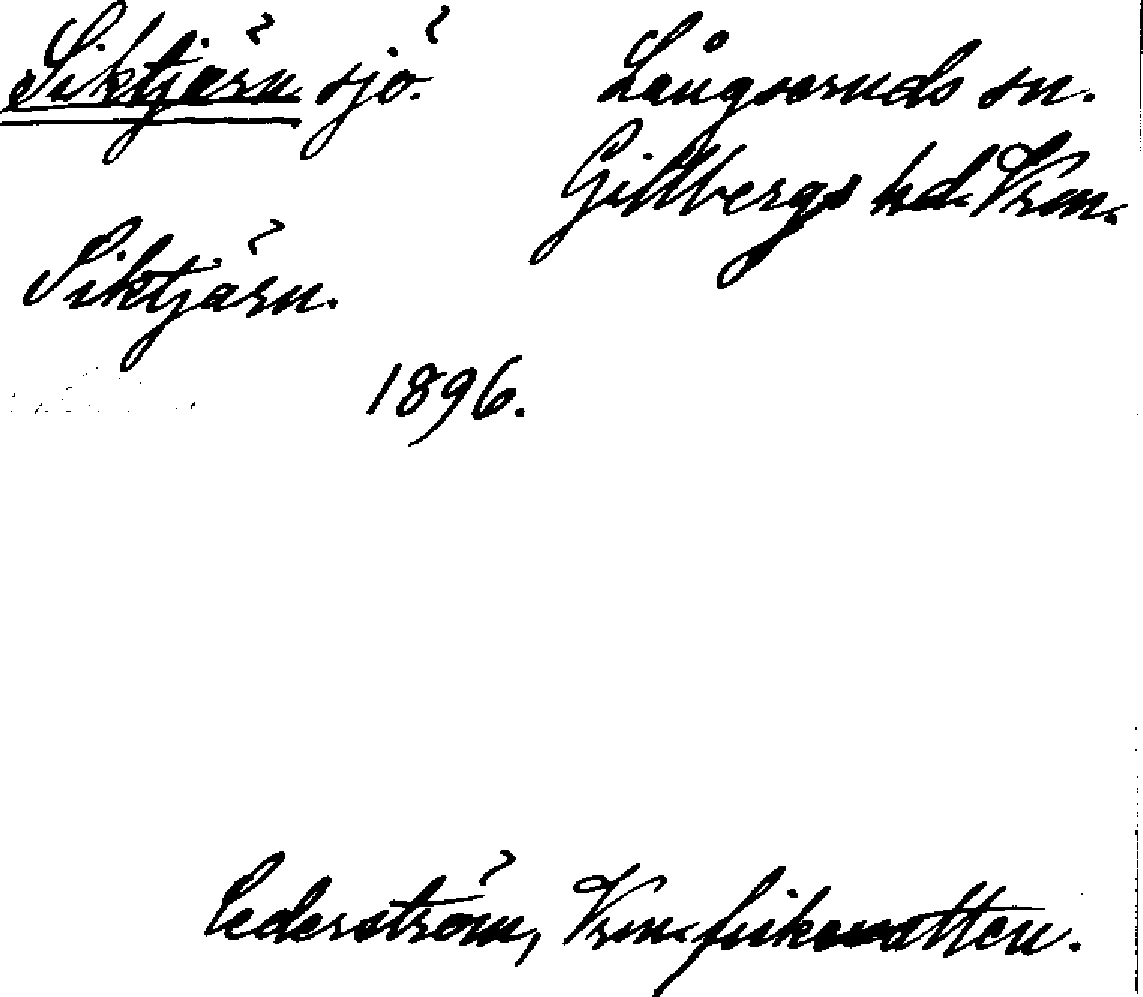 Siktjärn sjö. Långseruds sn.
Gillbergs hd. Vrm.
Siktjärn.
1896.
Cederström, Vrm. fiskevatten.